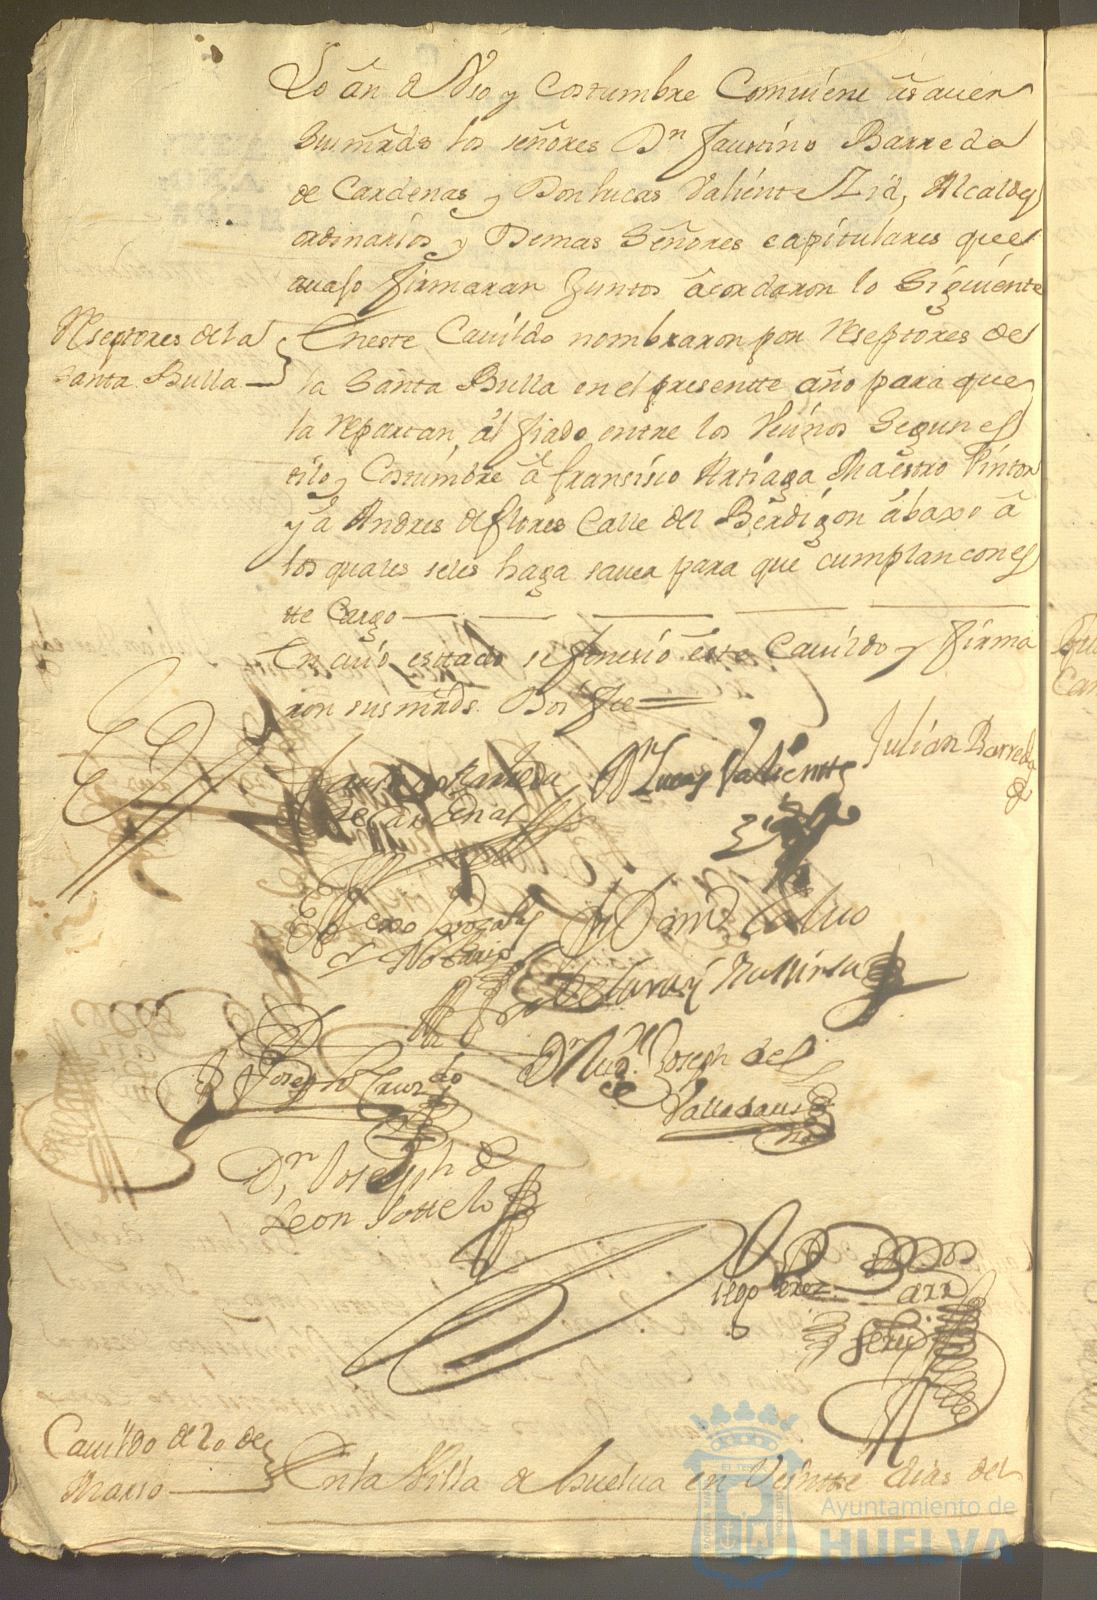 Lo an de Uso y Costumbre Combiene a saver
Sus mrds los señores Dn Faustino Barreda
de Cardenas y Don Lucas Valiente Zid, Alcaldes
ordinarios y Demas Señores capitulares que el
avajo firmaran Juntos acordaron lo Siguiente
Reseptores de la
Santa Bulla
En este Cavildo nombraron por Reseptores de
la Santa Bulla en el presentte año para que
la Repartan al fiado entre los Vecinos Segun es
tilo y Costumbre a Fransisco Artiaga Maestro Pintor
y a Andres de flores Calle del Berdigon abaxo a
los quales seles haga saver para que cumplan con es
te Cargo
En cuio esttado se fenesio este Cavildo y firma
ron sus mrds Doi fee
Julian Barreda
Faustino Barreda
de Cardenas
Dn Lucas Valientte
Zid
Dn Joseph de
Leon Sottelo
Dn Joseph del
Diego Perez
Cavildo de 20 de
Marso
En la Villa de Huelva en Veintte dias del
Ayuntamiento de
HUELVA